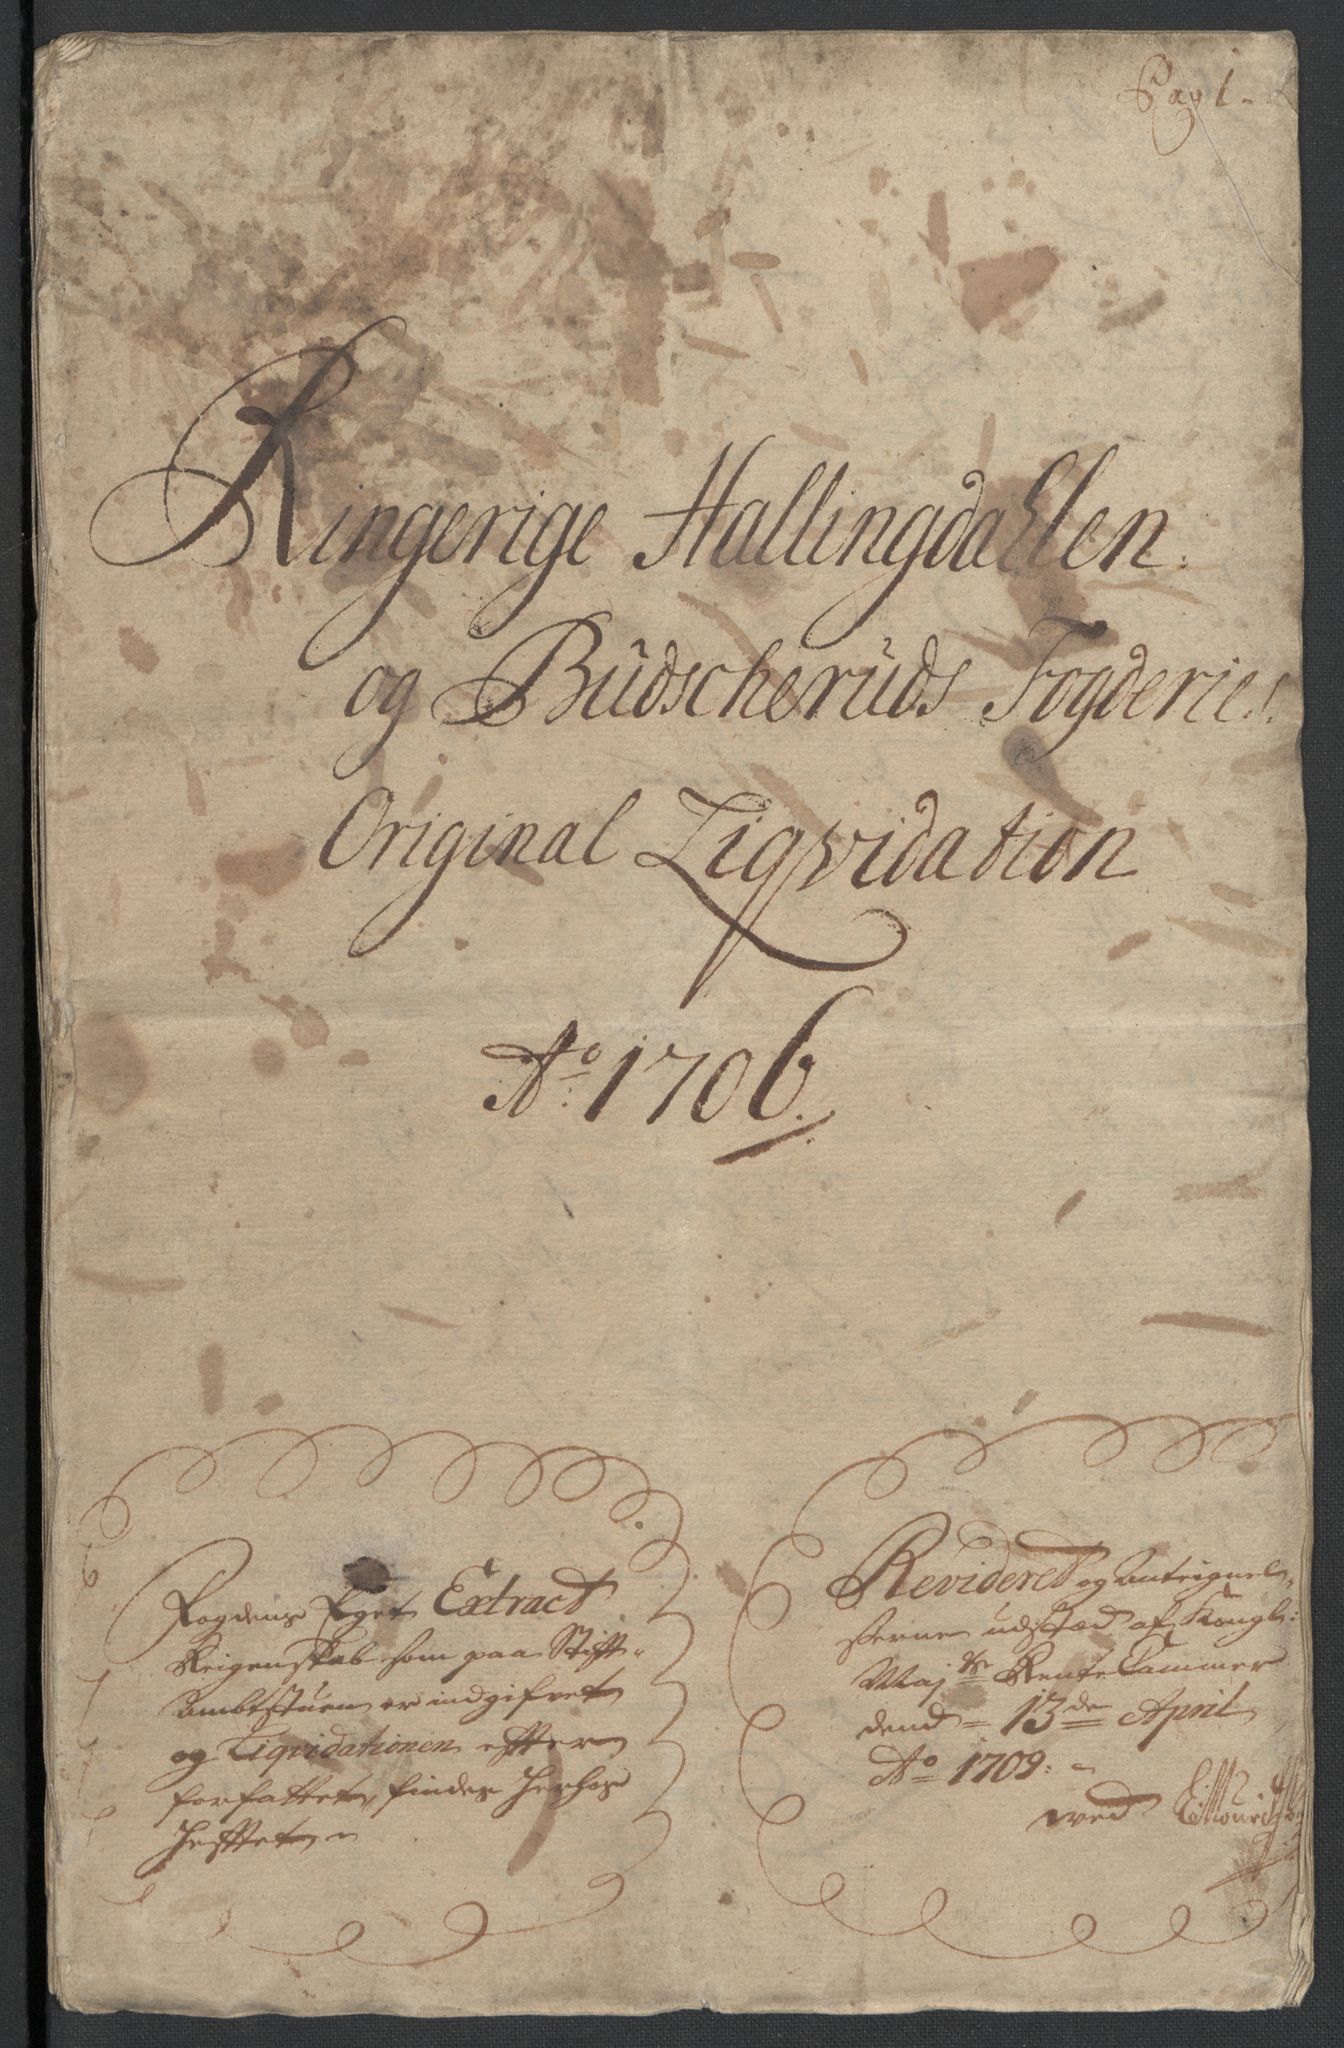 Pag 1.
Ringerige Hallingdahlen
og Büdscherüds Fogderies
Original Liqvidation
Ao 1706.
Fogdens Eget Extract
Reigenskab som paa Stift-
Ambtstuen er indgifvet
og Liqvidationen efter
forfattet, findes herhos
hefftet
Revideret og Anteignel-
serne udstæd af Kongl:
Maj:ts Rente Cammer
dend 13de April
Ao 1709.
wed